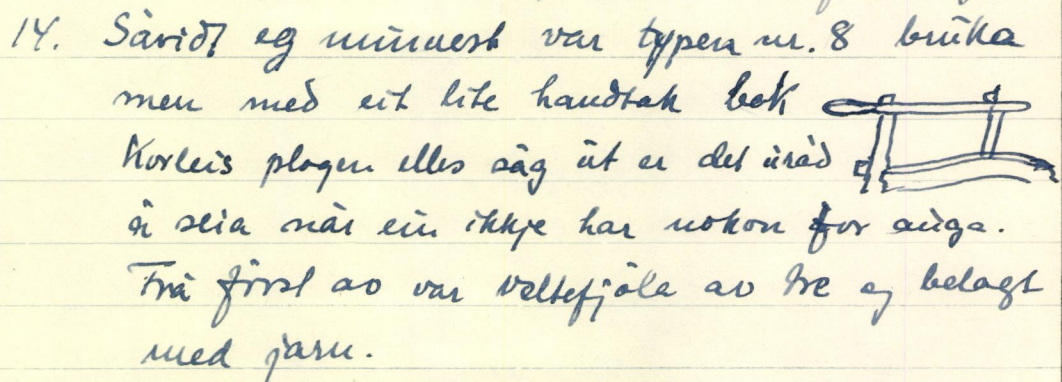 14. Såvidt eg minnest var typen nr. 8 brüka
men med eit lite handtak bak
Korleis plogen elles såg út er det úråd
å seia når ein ikkje har nokon for auga.
Frå först av var veltefjöla av tre og belagt
med jarn.